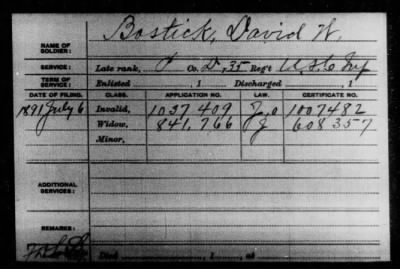 Bostick, David W.
NAME OF SOLDIER:
SERVICE: Late rank, P Co. D, 35 Reg't U.S.C. Inf
TERM OF SERVICE: Enlisted , 1 Discharged , 1
DATE OF FILING. CLASS. APPLICATION NO. LAW. CERTIFICATE NO.
1891 July 6 Invalid, 1037409 1007482
Widow, 841,766 608357
Minor,
ADDITIONAL SERVICES:
REMARKS:
Died , 1 , at